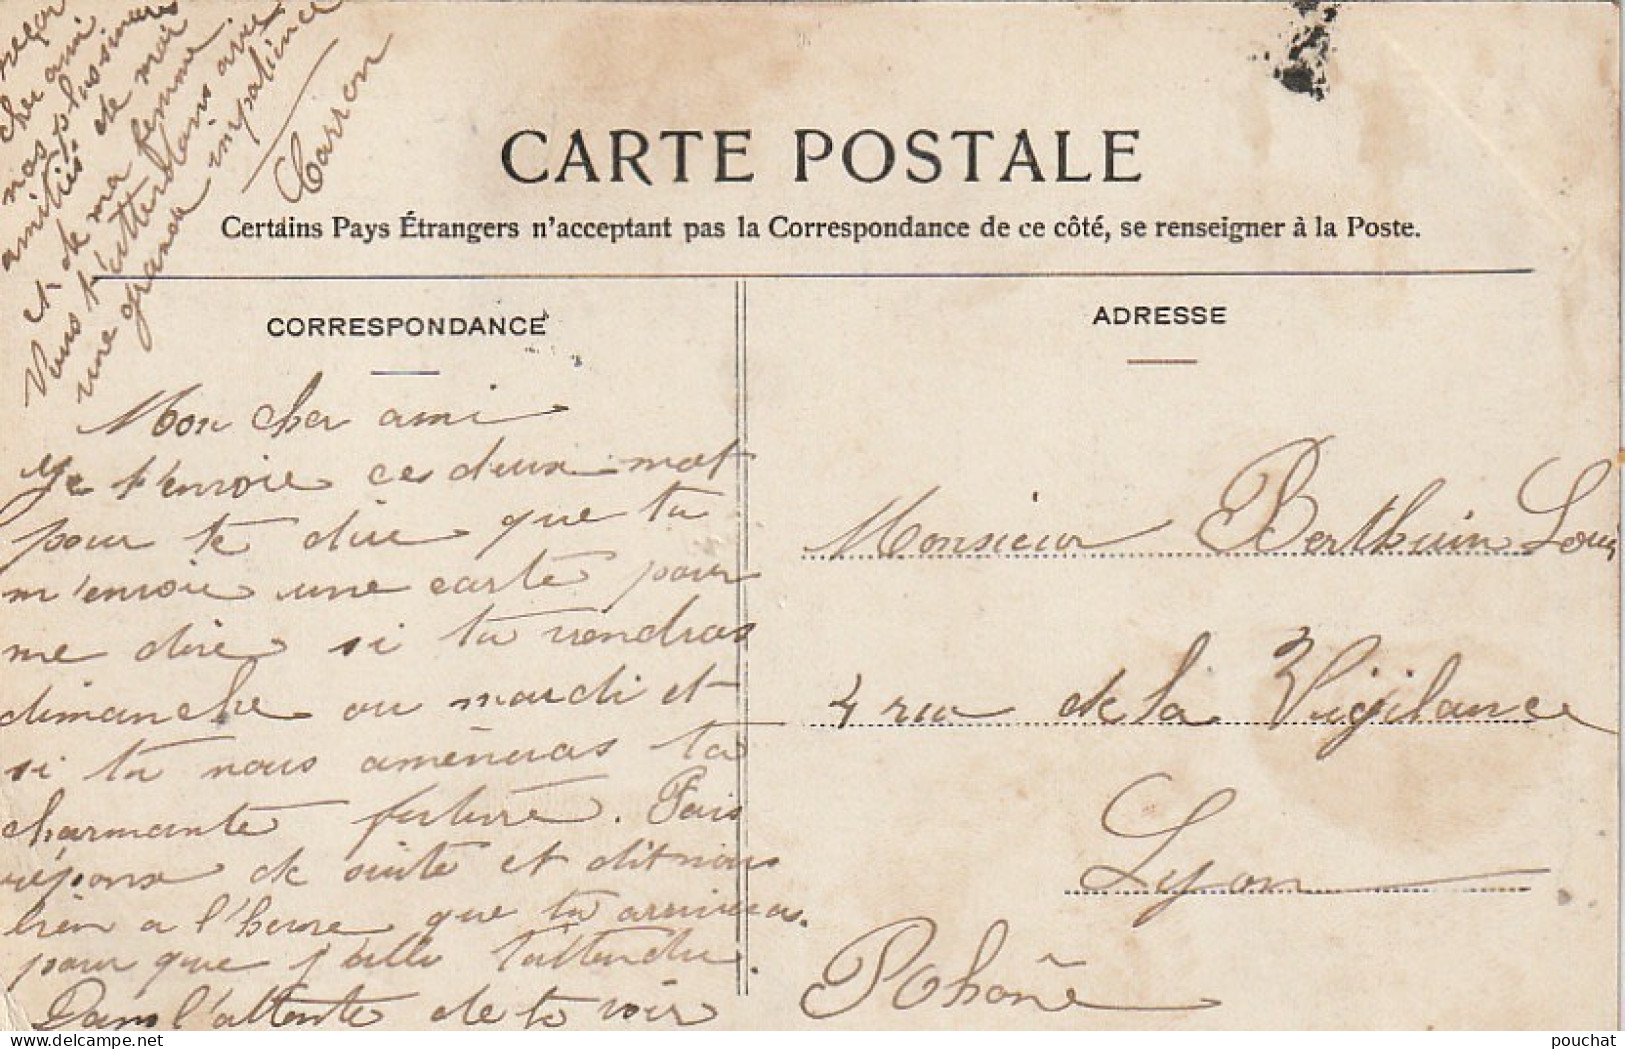 CARTE POSTALE
Certains Pays Étrangers n'acceptant pas la Correspondance de ce côté, se renseigner à la Poste.
CORRESPONDANCE
Mon cher ami
Je t'envoie ces deux mot
pour te dire que tu
m'envoie une carte pour
me dire si tu viendras
dimanche ou mardi et
si tu nous amèneras ta
charmante future. Fais
réponse de suite et dit nous
bien a l'heure que tu arriveras.
pour que j'aille t'attendre.
Dans l'attente de te voir
reçoi
cher ami
nos plus sincères
amitiés de moi
et de ma femme
Nous t'attendons avec
une grande impatience
Carron
ADRESSE
Monsieur Berthuin Louis
4 rue de la Vigilance
Lyon
Rhône
delcampe.net
pouchat